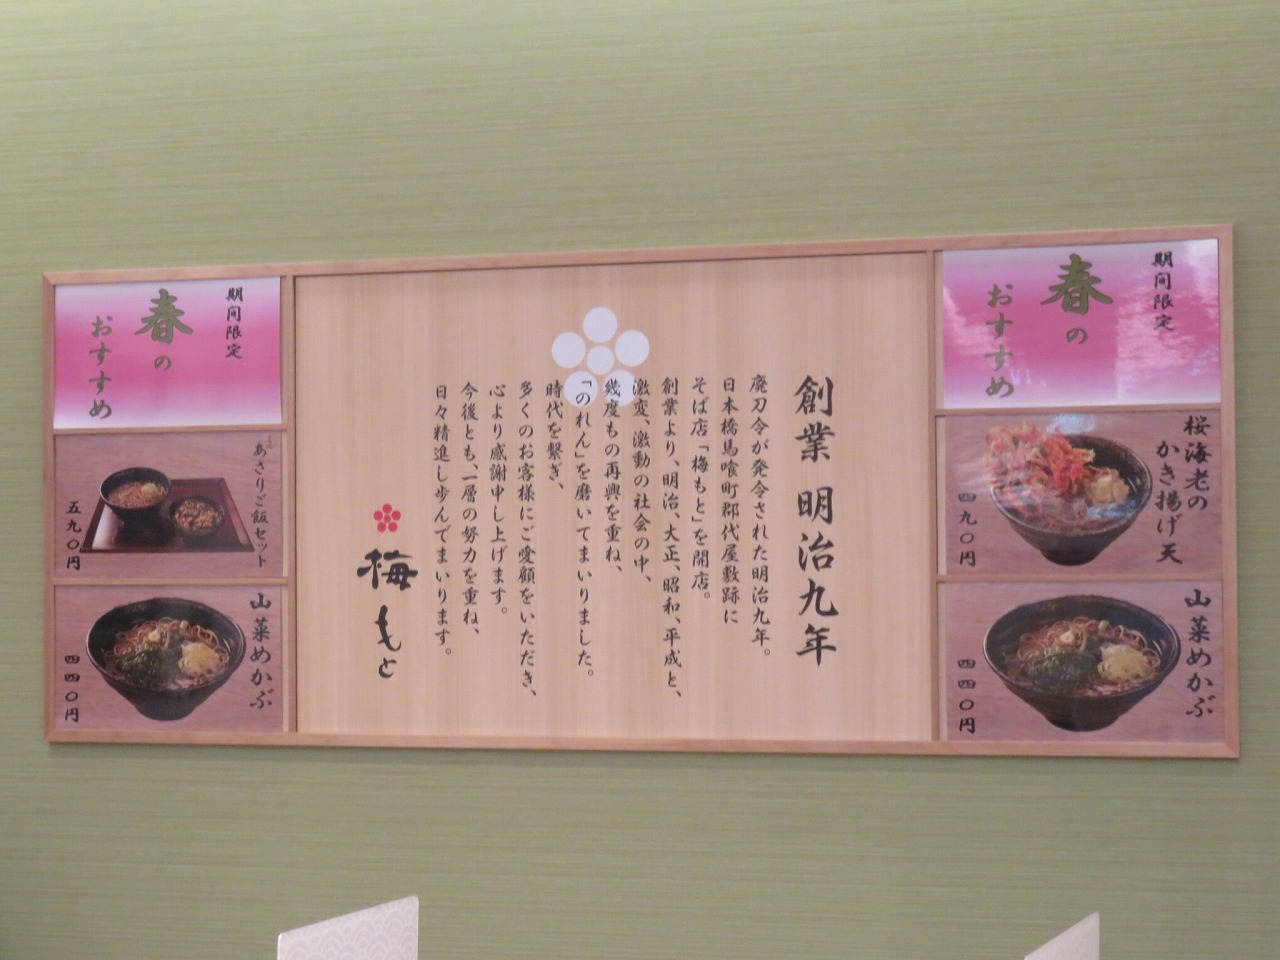 期間限定
春の
おすすめ
桜海老の
かき揚げ天
四九〇円
山菜めかぶ
四四〇円
創業 明治九年
廃刀令が発令された明治九年。
日本橋馬喰町郡代屋敷跡に
そば店「梅もと」を開店。
創業より、明治、大正、昭和、平成と、
激変、激動の社会の中、
幾度もの再興を重ね、
「のれん」を磨いてまいりました。
時代を繋ぎ、
多くのお客様にご愛顧をいただき、
心より感謝申し上げます。
今後とも、一層の努力を重ね、
日々精進し歩んでまいります。
梅もと
期間限定
春の
おすすめ
あさりご飯セット
五九〇円
山菜めかぶ
四四〇円